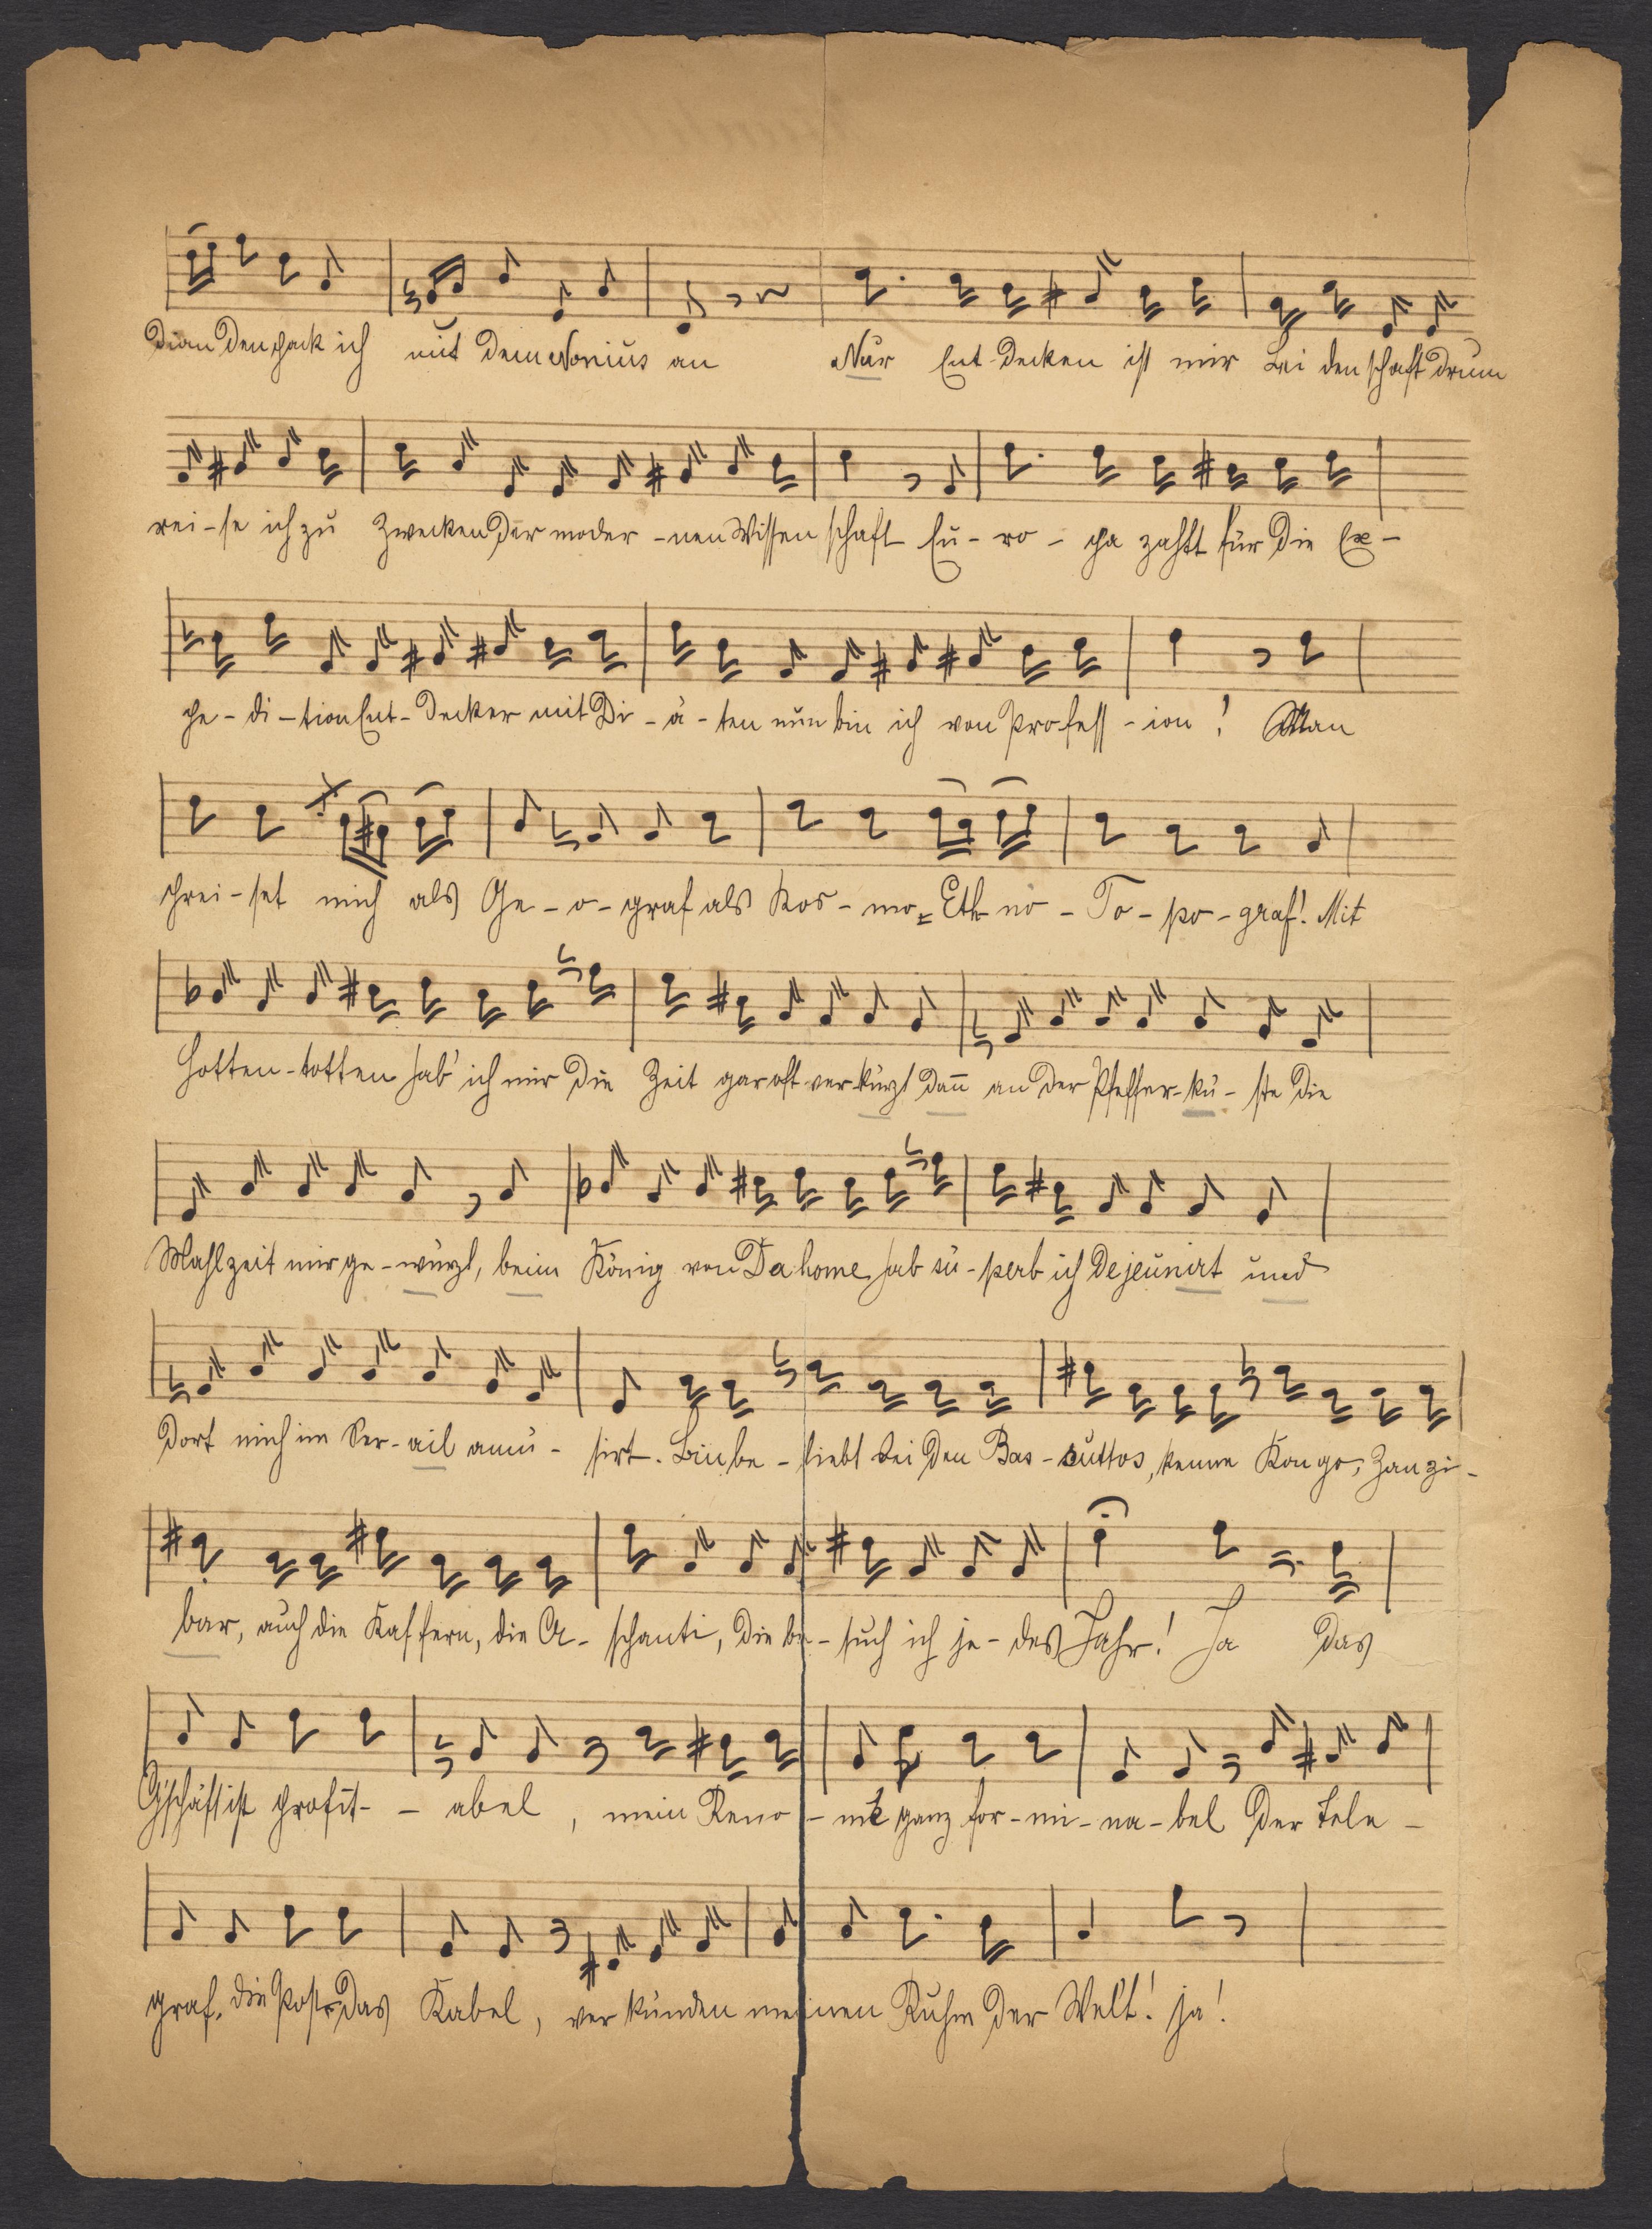 dian den pack ich mit dem Nonius an Nur Ent-decken ist mir Lei den schaft drum
rei-se ich zu Zwecken der moder-nen Wissen schaft Eu-ro-pa zahlt für die Ex-
pe-di-tion Ent-decker mit Di-ä-ten nun bin ich von Profess-ion! Man
prei-set mich als Ge-o-graf als Kos-mo-Eth-no-To-po-graf! Mit
Hotten-totten hab' ich mir die Zeit gar oft verkürzt dañ an der Pfeffer-kü-ste die
Mahlzeit mir ge-würzt, beim König von Dahome hab su-perb ich dejeunirt und
dort mich im Ser-ail amü-sirt. Bin be-liebt bei den Bas-suttos, kenne Kongo, Zanzi-
bar, auch die Kaffern, die A-schanti, die be-such ich je-des Jahr! Ja das
G'schäft ist profit-abel, mein Reno-mé ganz for-mi-na-bel der Tele-
graf, die Post, das Kabel, ver künden meinen Ruhm der Welt! ja!